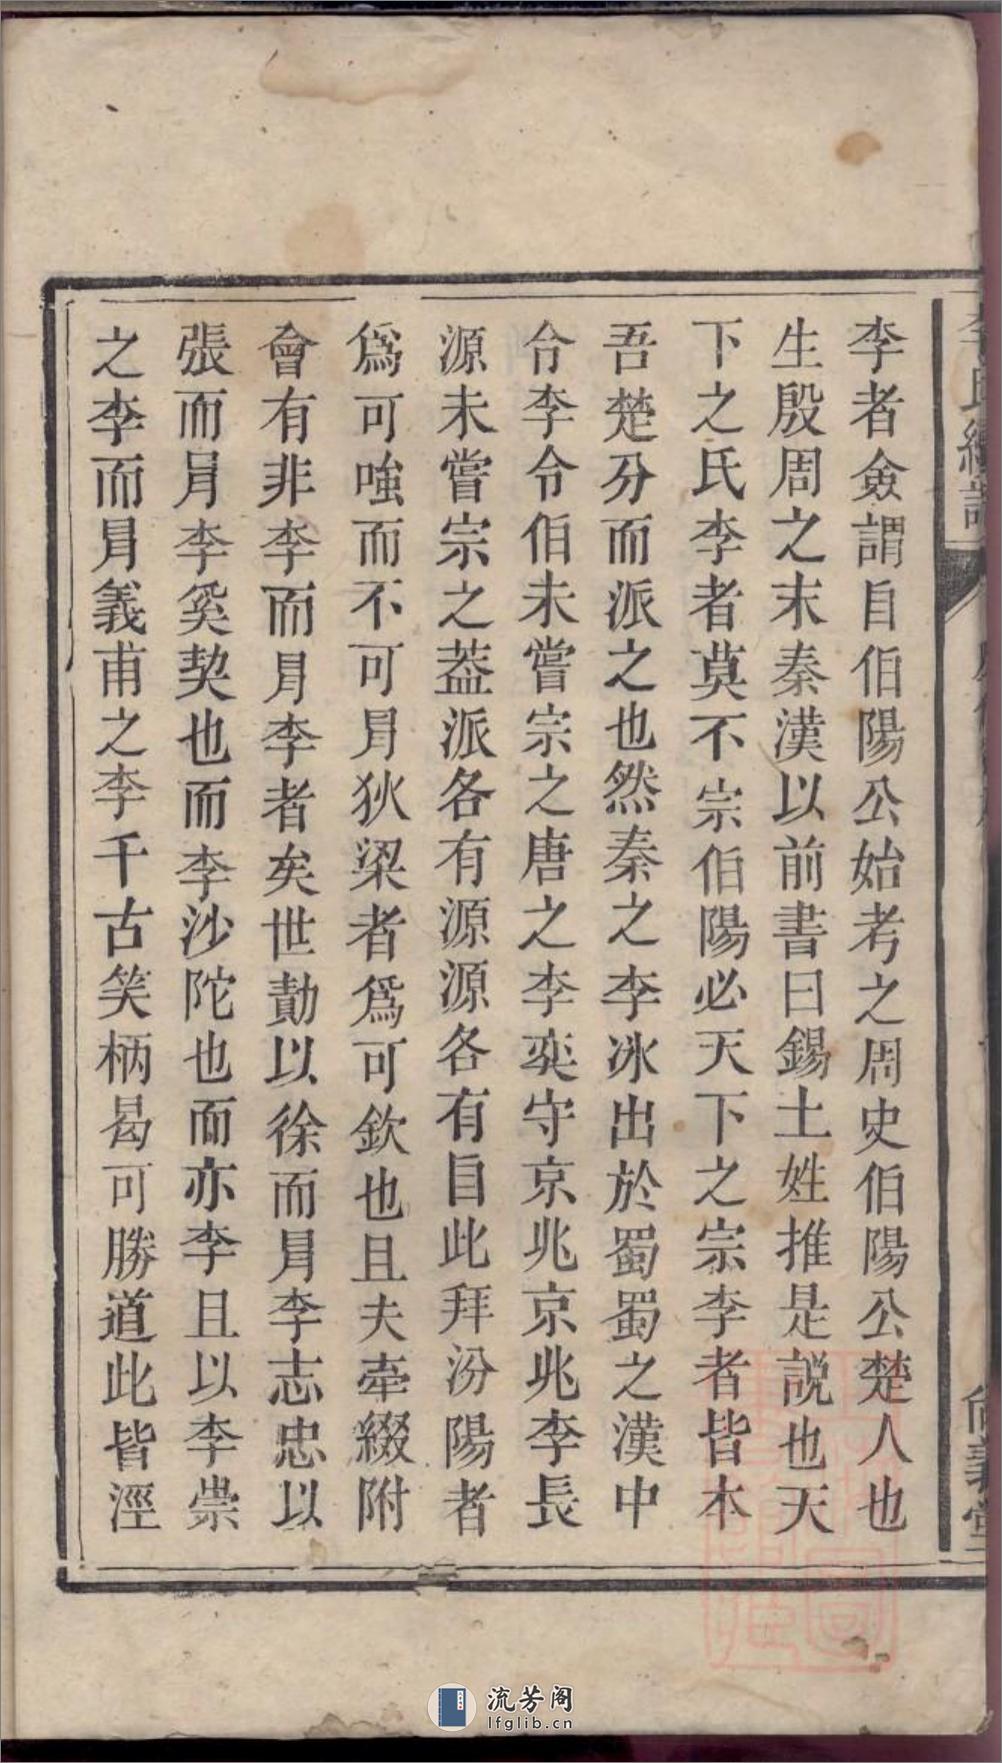 李者僉謂自伯陽公始考之周史伯陽公楚人也
生殷周之末秦漢以前書曰錫土姓推是説也天
下之氏李者莫不宗伯陽必天下之宗李者皆本
吾楚分而派之也然秦之李冰出於蜀蜀之漢中
令李令伯未嘗宗之唐之李奕守京兆京兆李長
源未嘗宗之葢派各有源源各有自此拜汾陽者
爲可嗤而不可冐狄梁者爲可欽也且夫牽綴附
會有非李而冐李者矣世勣以徐而冐李志忠以
張而冐李奚契也而李沙陀也而亦李且以李崇
之李而冐義甫之李千古笑柄曷可勝道此皆涇
尙義堂
流芳阁
lfglib.cn